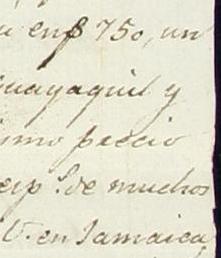 en $ 750, un
uayaquil y
imo precio
de muchos
V. en Jamaica,